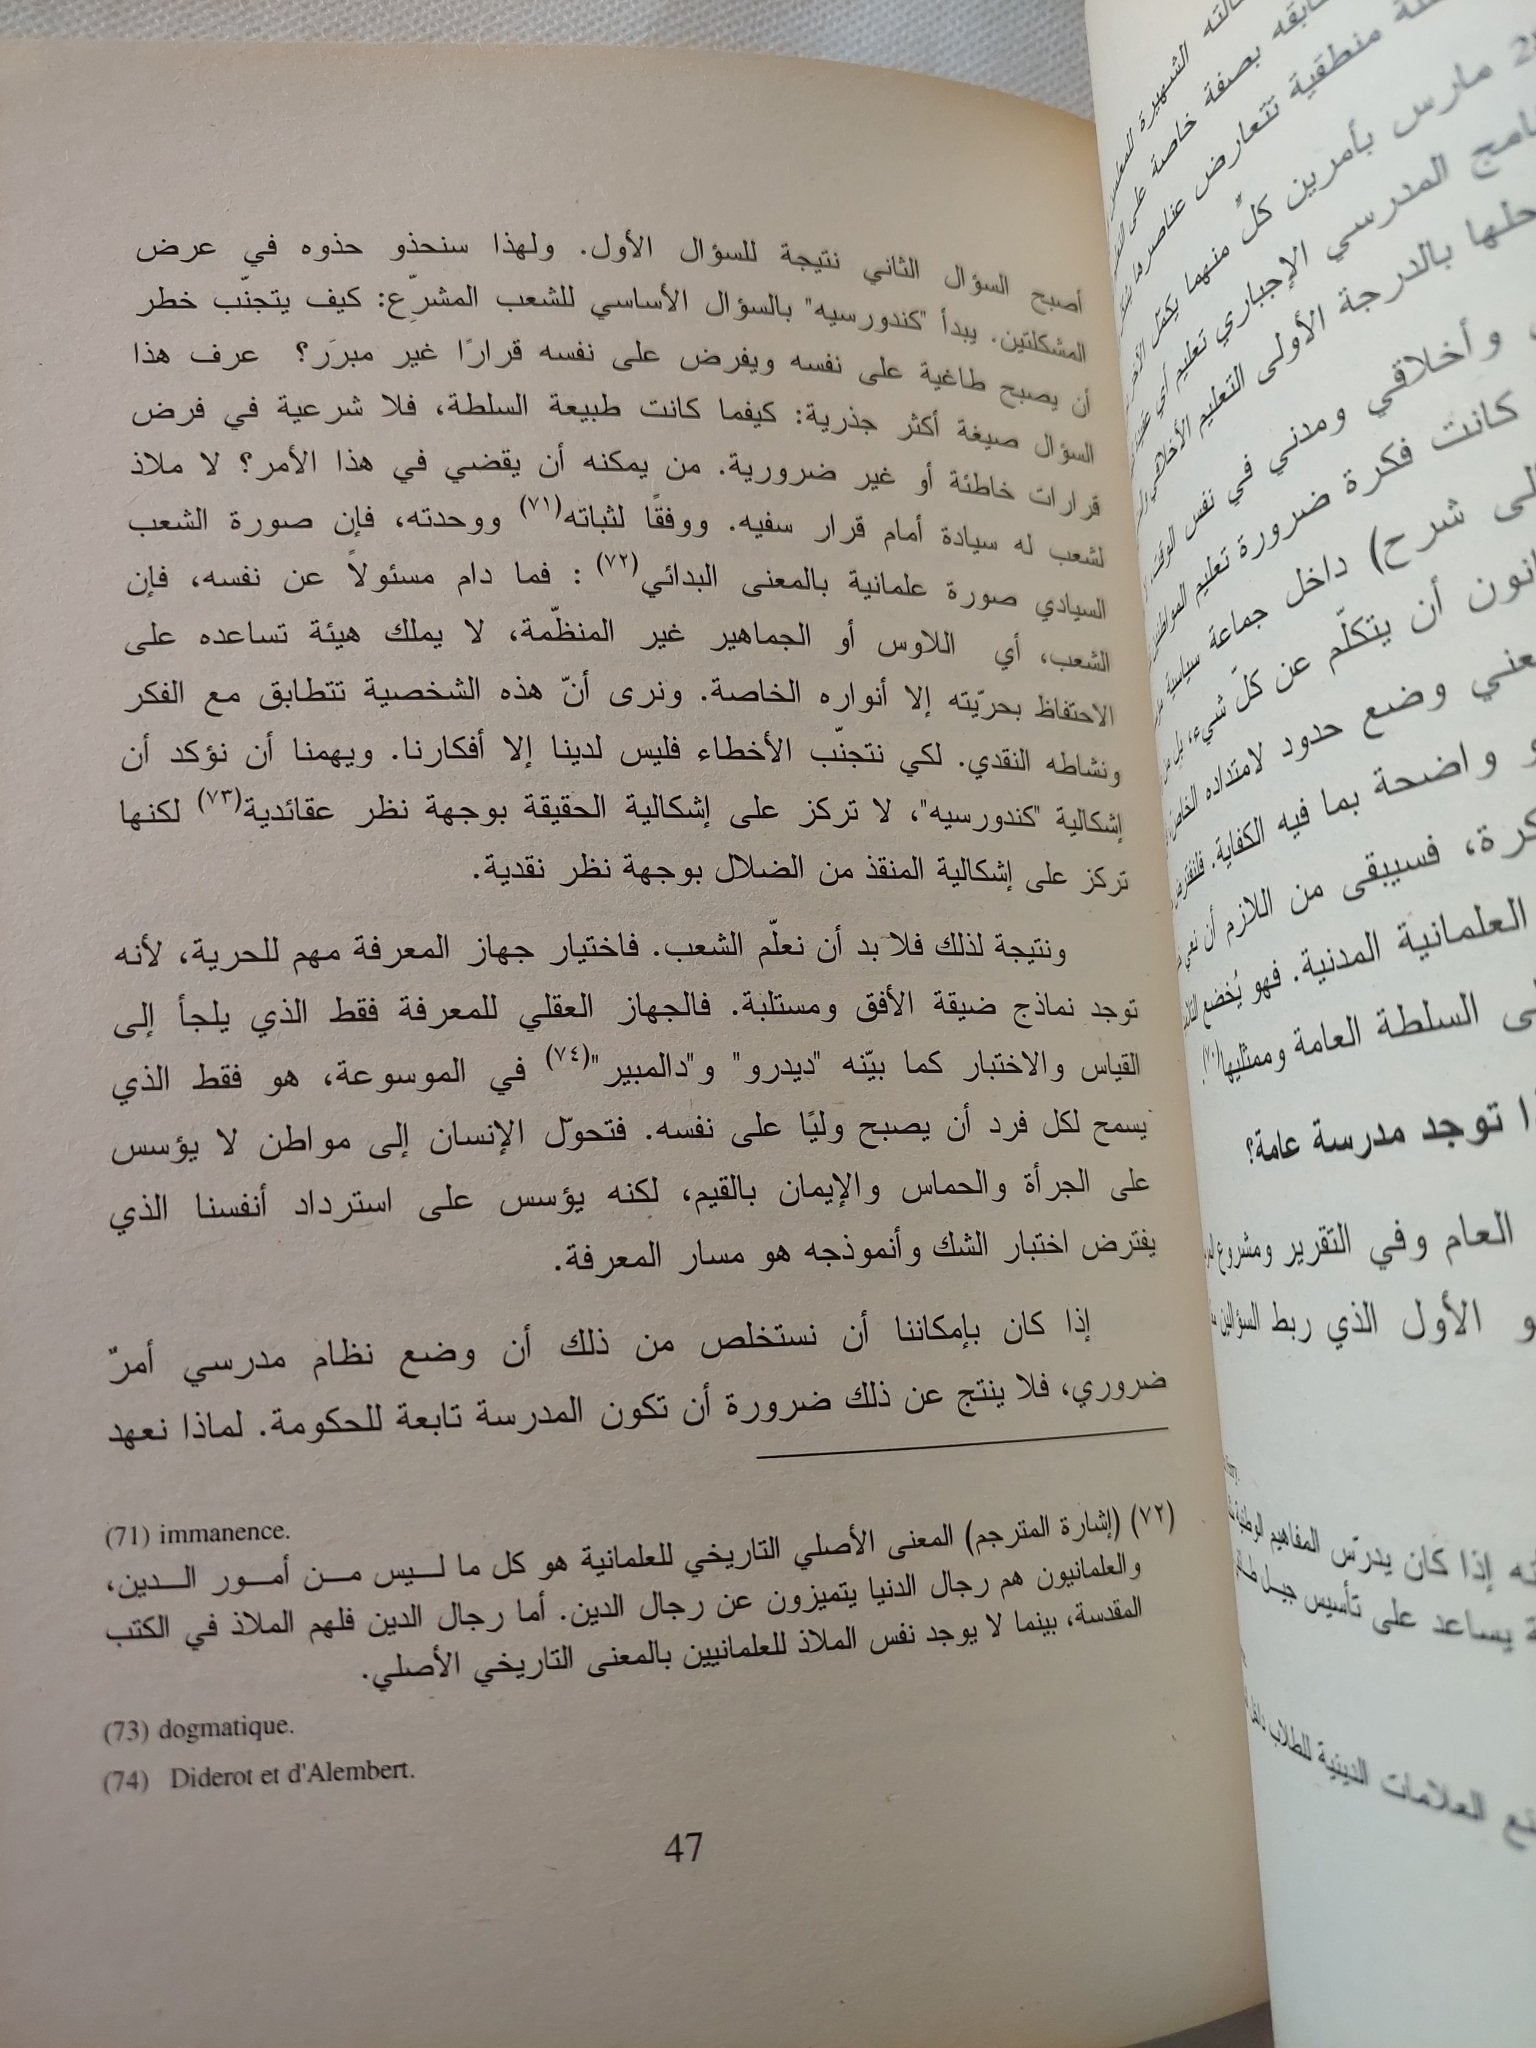 أصبح السؤال الثاني نتيجة للسؤال الأول. ولهذا سنحذو حذوه في عرض
المشكلتين. يبدأ "كندورسيه" بالسؤال الأساسي للشعب المشرّع: كيف يتجنّب خطر
أن يصبح طاغية على نفسه ويفرض على نفسه قرارًا غير مبرَر؟ عرف هذا
السؤال صيغة أكثر جذرية: كيفما كانت طبيعة السلطة، فلا شرعية في فرض
قرارات خاطئة أو غير ضرورية. من يمكنه أن يقضي في هذا الأمر؟ لا ملاذ
لشعب له سيادة أمام قرار سفيه. ووفقًا لثباته(٧١) ووحدته، فإن صورة الشعب
السيادي صورة علمانية بالمعنى البدائي(٧٢) : فما دام مسئولاً عن نفسه، فإن
الشعب، أي اللاوس أو الجماهير غير المنظّمة، لا يملك هيئة تساعده على
الاحتفاظ بحريّته إلا أنواره الخاصة. ونرى أنّ هذه الشخصية تتطابق مع الفكر
ونشاطه النقدي. لكي نتجنّب الأخطاء فليس لدينا إلا أفكارنا. ويهمنا أن نؤكد أن
إشكالية "كندورسيه"، لا تركز على إشكالية الحقيقة بوجهة نظر عقائدية(٧٣) لكنها
تركز على إشكالية المنقذ من الضلال بوجهة نظر نقدية.
ونتيجة لذلك فلا بد أن نعلّم الشعب. فاختيار جهاز المعرفة مهم للحرية، لأنه
توجد نماذج ضيقة الأفق ومستلبة. فالجهاز العقلي للمعرفة فقط الذي يلجأ إلى
القياس والاختبار كما بيّنه "ديدرو" و"دالمبير"(٧٤) في الموسوعة، هو فقط الذي
يسمح لكل فرد أن يصبح وليًا على نفسه. فتحوّل الإنسان إلى مواطن لا يؤسس
على الجرأة والحماس والإيمان بالقيم، لكنه يؤسس على استرداد أنفسنا الذي
يفترض اختبار الشك وأنموذجه هو مسار المعرفة.
إذا كان بإمكاننا أن نستخلص من ذلك أن وضع نظام مدرسي أمرٌ
ضروري، فلا ينتج عن ذلك ضرورة أن تكون المدرسة تابعة للحكومة. لماذا نعهد
(71) immanence.
(٧٢) (إشارة المترجم) المعنى الأصلي التاريخي للعلمانية هو كل ما لـيس مـن أمـور الـدين،
والعلمانيون هم رجال الدنيا يتميزون عن رجال الدين. أما رجال الدين فلهم الملاذ في الكتب
المقدسة، بينما لا يوجد نفس الملاذ للعلمانيين بالمعنى التاريخي الأصلي.
(73) dogmatique.
(74) Diderot et d'Alembert.
47
مارس بأمرين كلٌ منهما يكمّل
المدرسي الإجباري تعليم
بالدرجة الأولى التعليم
وأخلاقي ومدني في نفس الوقت
كانت فكرة ضرورة تعليم
شرح) داخل جماعة سياسية
أن يتكلّم عن كلّ شيء، بل
وضع حدود لامتداده
واضحة بما فيه الكفاية.
فسيبقى من اللازم أن
العلمانية المدنية. فهو يُخضع
السلطة العامة وممثليها(٧٠).
توجد مدرسة عامة؟
العام وفي التقرير ومشروع
الأول الذي ربط السؤالين
إذا كان يدرّس المفاهيم الوطنية
يساعد على تأسيس جيل
العلامات الدينية للطلاب